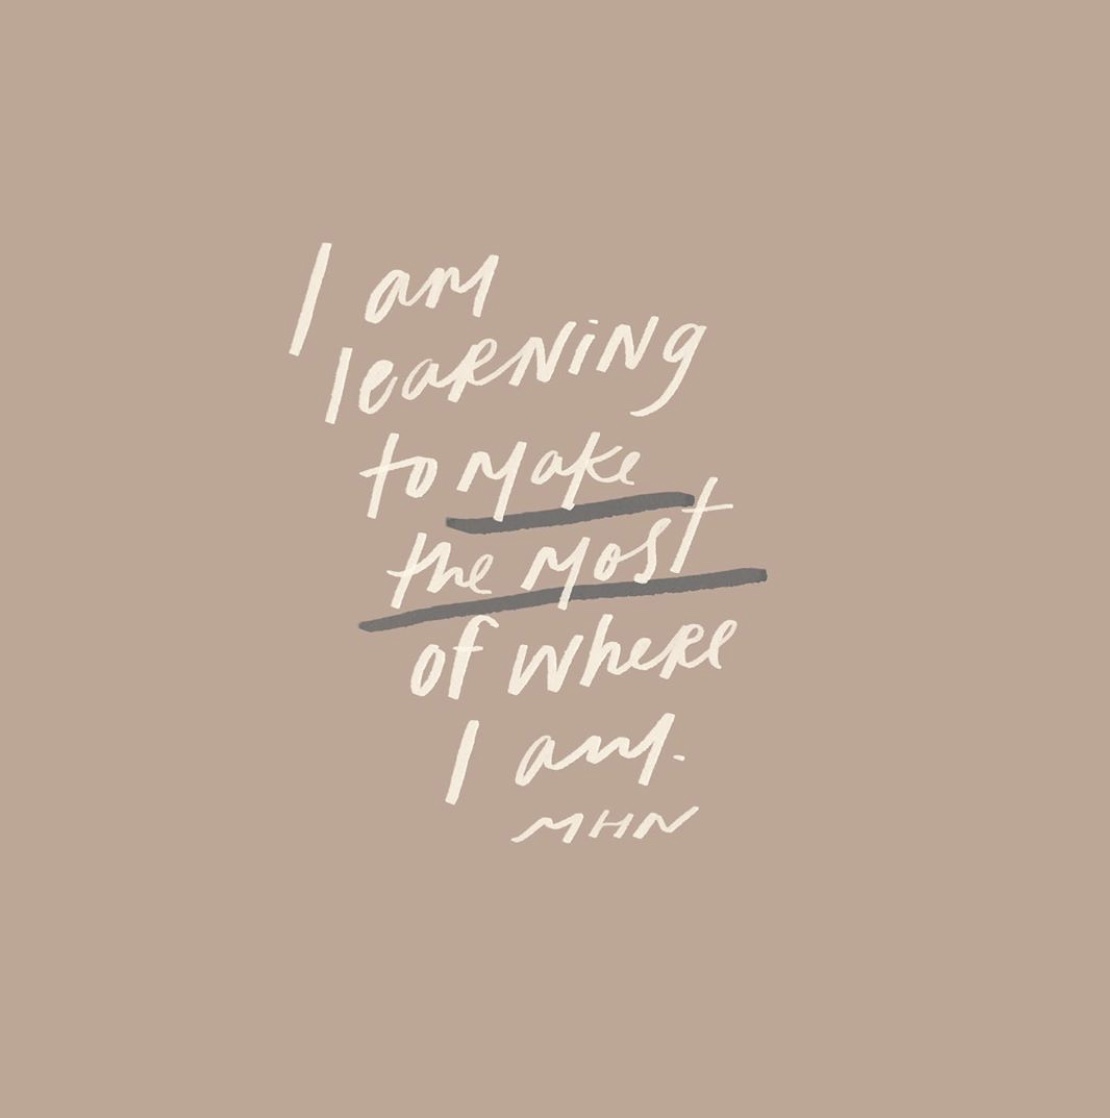 I am
learning
to make
the most
of where
I am.
MHN